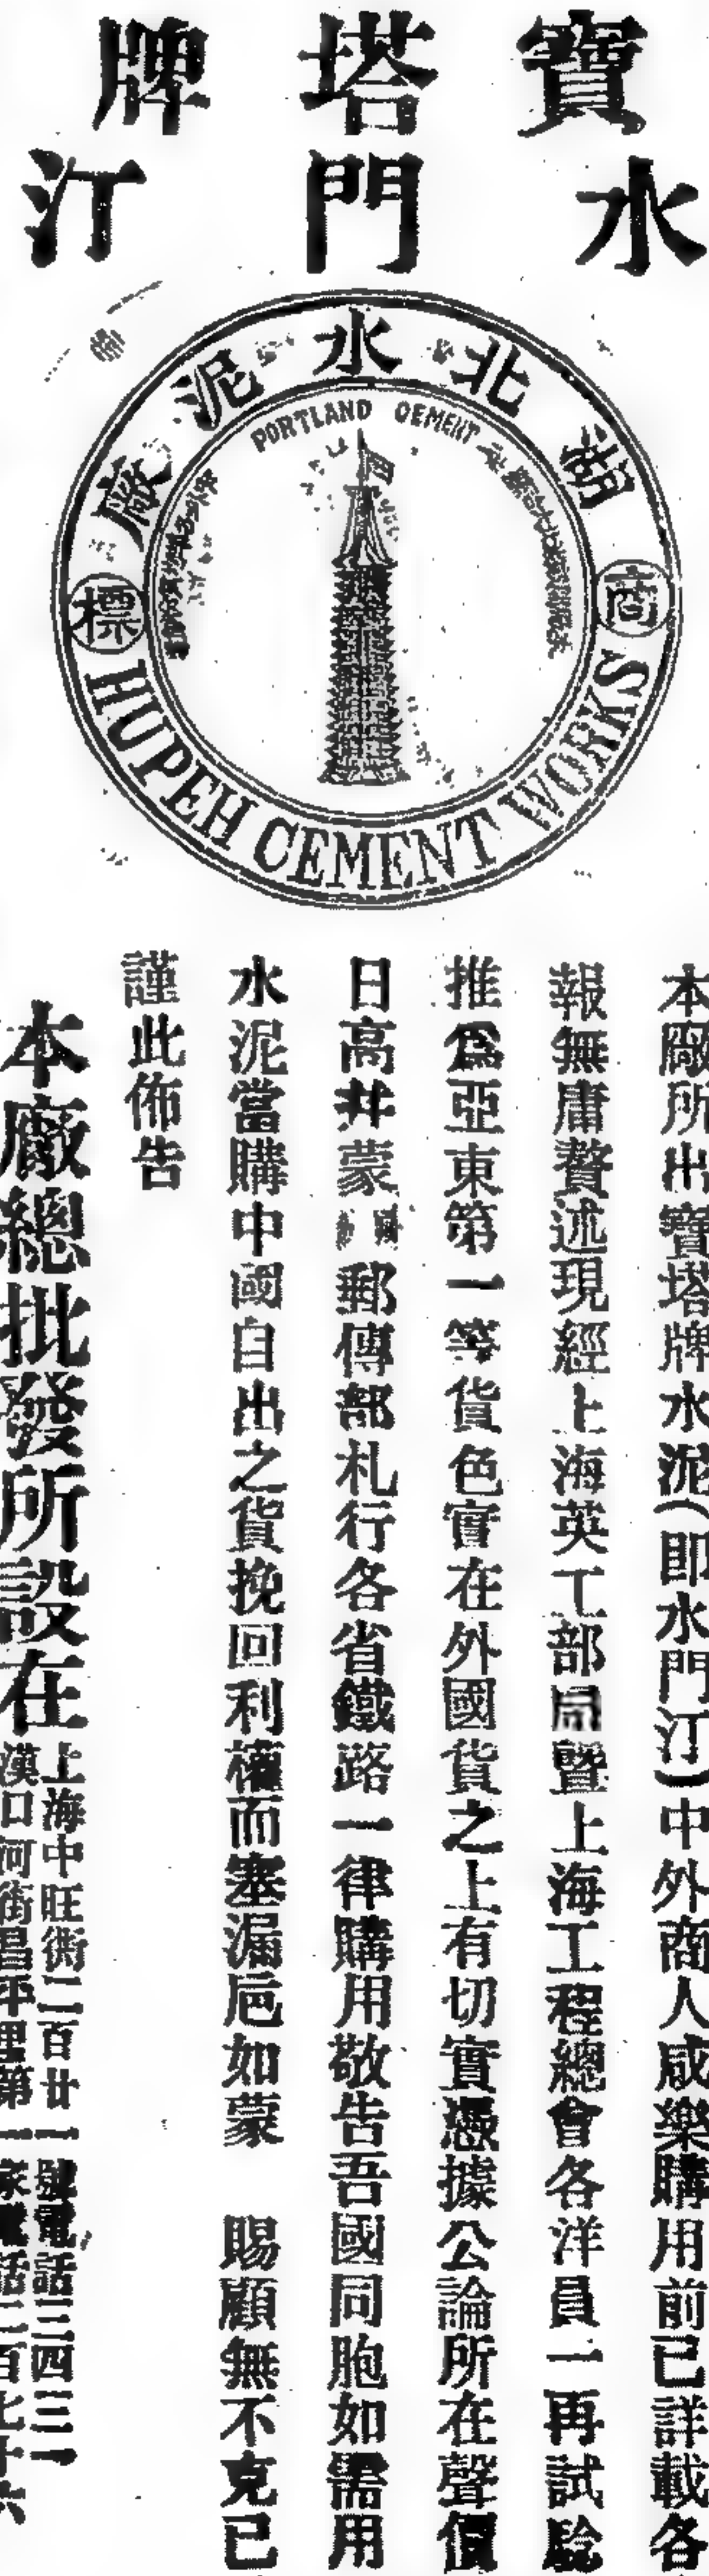 寶塔牌
水門汀
湖北水泥廠
PORTLAND CEMENT
商標
HUPEH CEMENT WORKS
本廠所出寶塔牌水泥(即水門汀)中外商人咸樂購用前已詳載各
報無庸贅述現經上海英工部局暨上海工程總會各洋員一再試驗
推爲亞東第一等貨色實在外國貨之上有切實憑據公論所在聲價
日高并蒙郵傳部札行各省鐵路一律購用敬告吾國同胞如需用
水泥當購中國自出之貨挽回利權而塞漏巵如蒙 賜顧無不克已
謹此佈告
本廠總批發所設在
上海中旺街二百廿一號電話三四三一
漢口河街昌平里第一家電話二百七十六